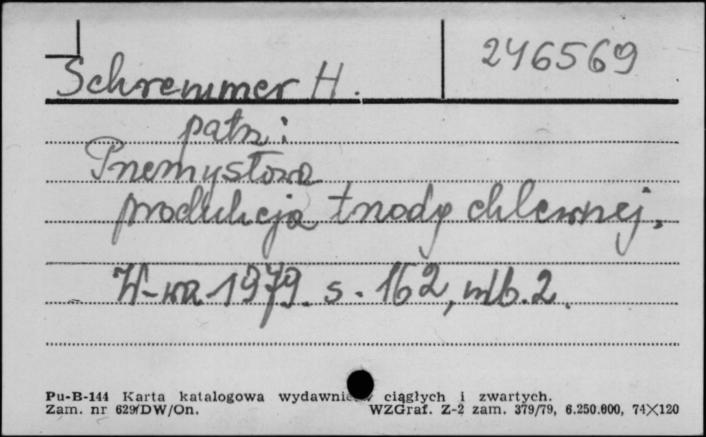 246569
Schremmer H.
patrz:
Przemysłowa
produkcja trzody chlewnej.
W-wa 1979. s. 162, nlb. 2.
Pu-B-144 Karta katalogowa wydawnic ciągłych i zwartych.
Zam. nr 629/DW/On. WZGraf. Z-2 zam. 379/79, 6.250.000, 74×120